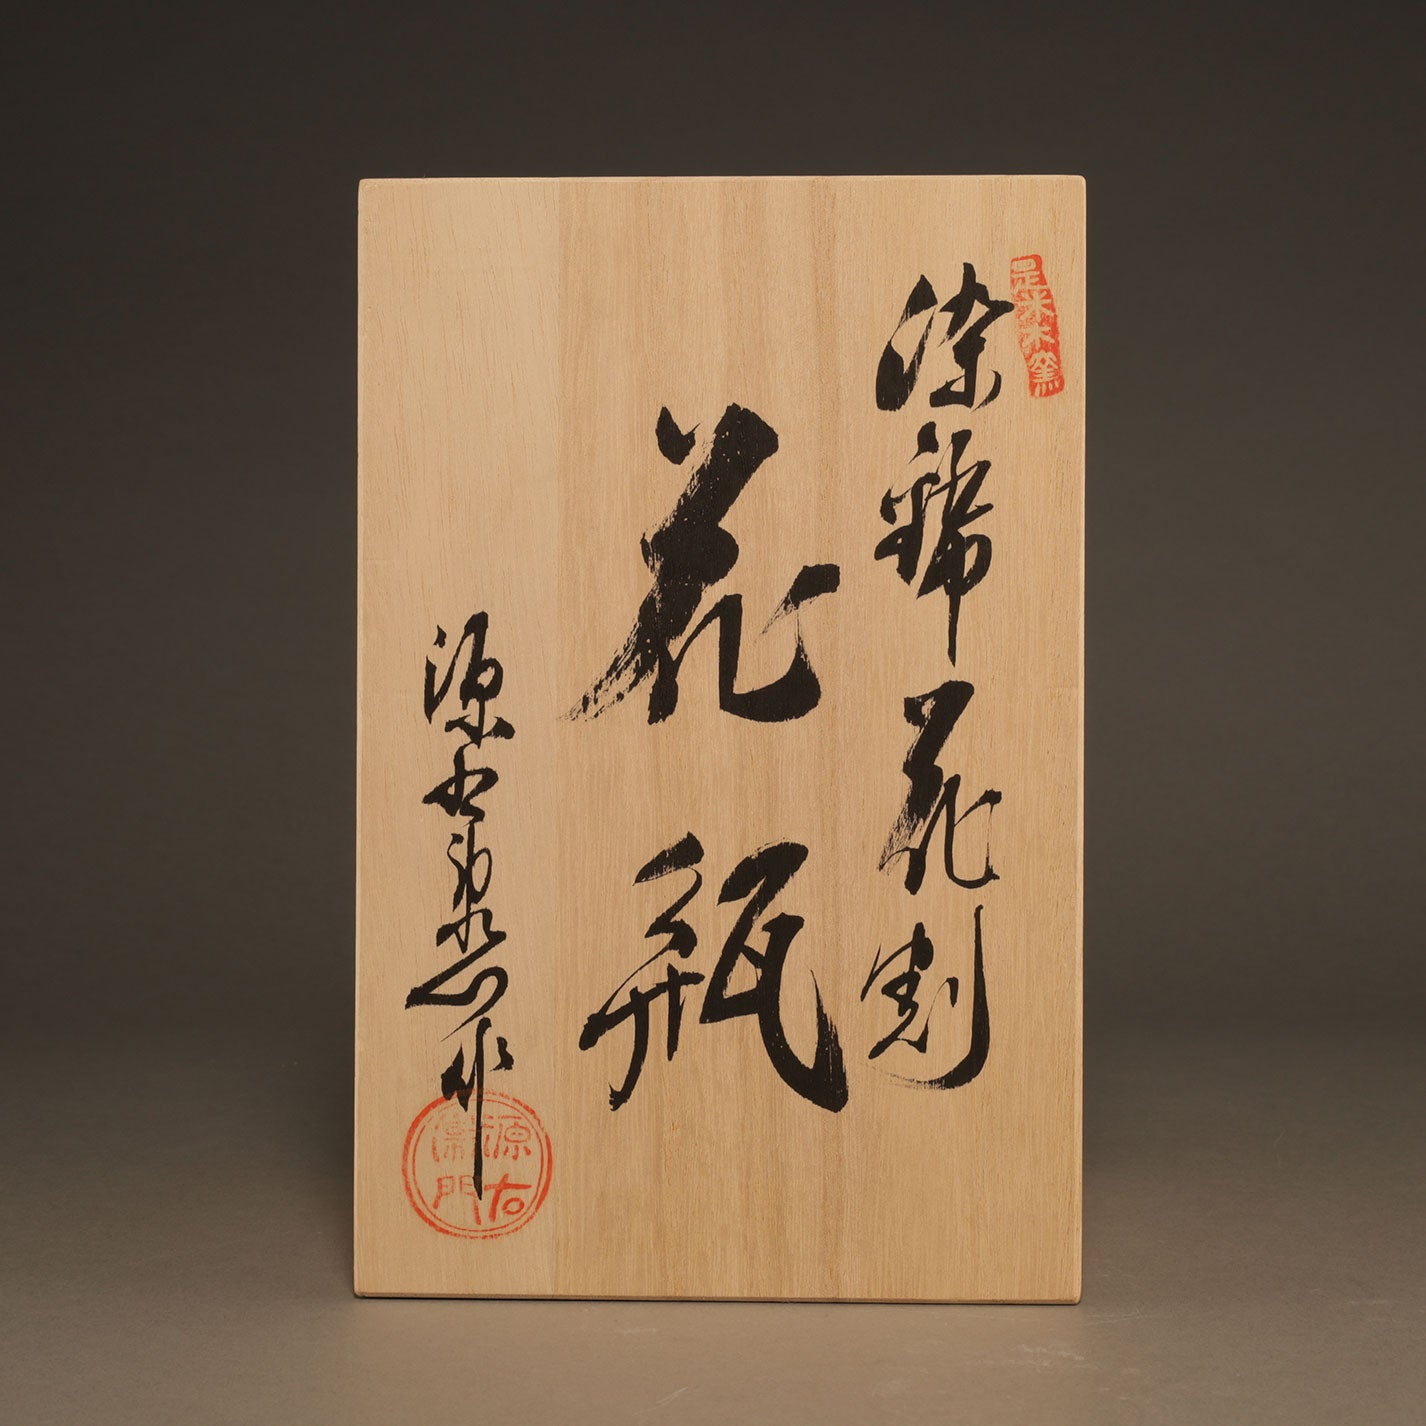 是米木窯
染錦花割
花瓶
源右衛門作
源右
衛門